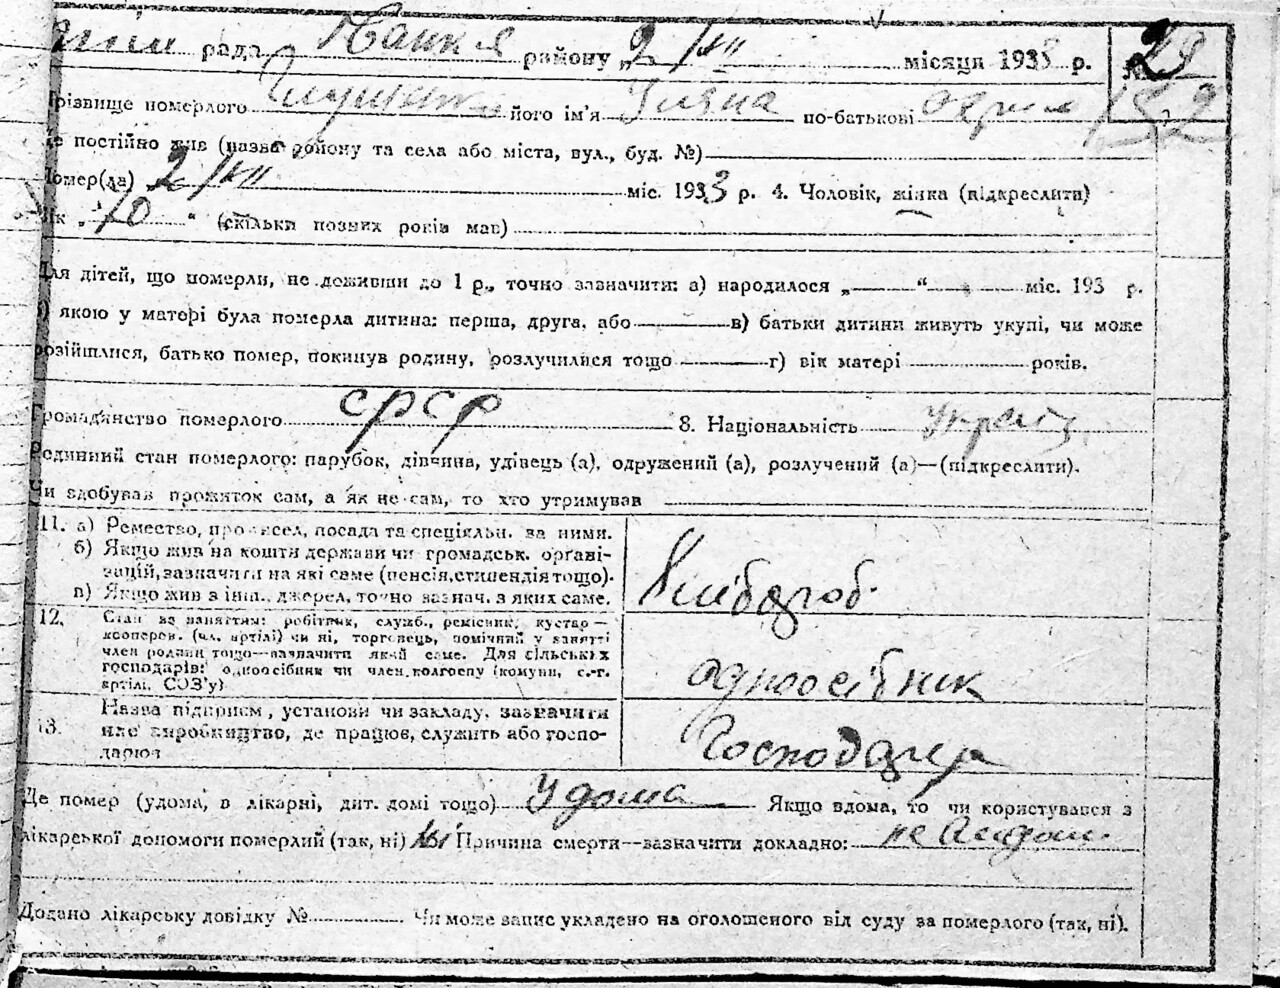 рада району „2 /VII місяця 1933 р. № 29
152
Прізвище померлого його ім'я Уляна по-батькові
Де постійно жив (назва району та села або міста, вул., буд. №)
Помер(ла) 2 /VII міс. 1933 р. 4. Чоловік, жінка (підкреслити)
Вік „70 “ (скільки повних років мав)
Для дітей, що померли, не доживши до 1 р., точно зазначити: а) народилося „ “ міс. 193 р.
якою у матері була померла дитина: перша, друга, або в) батьки дитини живуть укупі, чи може
розійшлися, батько помер, покинув родину, розлучилися тощо г) вік матері років.
Громадянство померлого СРСР 8. Національність
Родинний стан померлого: парубок, дівчина, удівець (а), одружений (а), розлучений (а)—(підкреслити).
Чи здобував прожиток сам, а як не сам, то хто утримував
11. а) Ремество, промисел, посада та спеціяльн. за ними.
б) Якщо жив на кошти держави чи громадськ. органі-
зацій, зазначити на які саме (пенсія, стипендія тощо).
в) Якщо жив з інш. джерел, точно зазнач. з яких саме.
Хлібороб
12. Стан за заняттям: робітник, служб., ремісник, кустар—
кооперов. (чл. артілі) чи ні, торговець, помічний у занятті
член родини тощо—зазначити який саме. Для сільських
господарів: одноосібник чи член колгоспу (комуни, с.-г.
артілі, СОЗ'у)
одноосібник
13. Назва підприєм., установи чи закладу, зазначити
яке виробництво, де працює, служить або госпо-
дарює
Господар
Де помер (удома, в лікарні, дит. домі тощо) Удома Якщо вдома, то чи користувався з
лікарської допомоги померлий (так, ні) ні Причина смерти—зазначити докладно: не
Додано лікарську довідку № Чи може запис укладено на оголошеного від суду за померлого (так, ні).